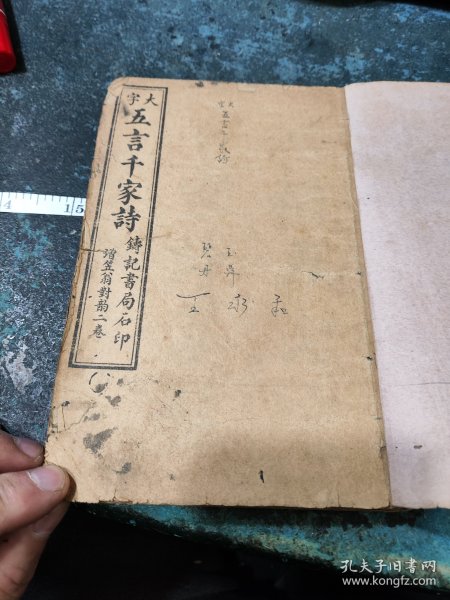 大字
五言千家詩
鑄記書局石印
增笠翁對韵二卷
大字
五言千家詩
王
4
15
孔夫子旧书网
www.kongfz.com